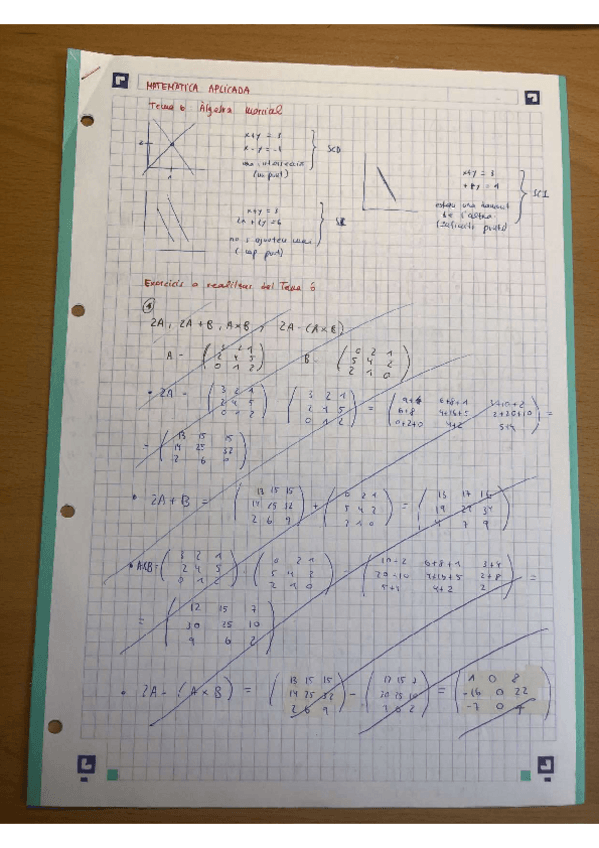 MATEMÀTICA APLICADA
Tema 6 Àlgebra
x+y = 3
x - y = -1
SCD
(un punt)
x+y = 3
SCI
(infinits punts)
x+y = 3
2x + 2y = 6
no s'ajunten mai
(cap punt)
Exercicis a realitzar del Tema 6
2A, 2A+B, A×B, 2A-(A×B)
A = ( 3 2 1
2 4 5
0 1 2 )
B = ( 0 2 1
5 4 2
2 1 0 )
• 2A = ( 3 2 1
2 4 5
0 1 2 ) ( 3 2 1
2 4 5
0 1 2 ) = ( 6+8+1
6+8 4+16+5 2+20+10
0+2+0 4+2 ) =
= ( 13 15 15
14 25 32
2 6 9 )
• 2A+B = ( 13 15 15
14 25 32
2 6 9 ) + ( 0 2 1
5 4 2
2 1 0 ) = ( 13 17 16
19 29 34
4 7 9 )
• A×B = ( 3 2 1
2 4 5
0 1 2 ) ( 0 2 1
5 4 2
2 1 0 ) = ( 10+2 6+8+1 3+4
20+10 4+16+5 2+8
5+4 4+2 2 ) =
= ( 12 15 7
30 25 10
9 6 2 )
• 2A - (A×B) = ( 13 15 15
14 25 32
2 6 9 ) - ( 12 15 7
30 25 10
9 6 2 ) = ( 1 0 8
-16 0 22
-7 0 7 )